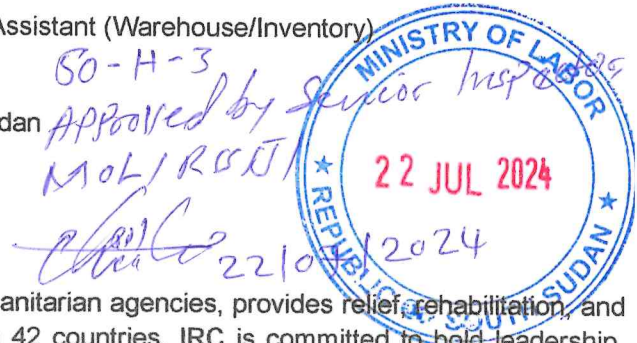 Assistant (Warehouse/Inventory)
60-H-3
dan Approved by Senior Inspector
MOL/RSS/
22/07/2024
MINISTRY OF LABOR
22 JUL 2024
REPUBLIC OF SOUTH SUDAN
anitarian agencies, provides relief, rehabilitation, and
42 countries. IRC is committed to bold leadership,